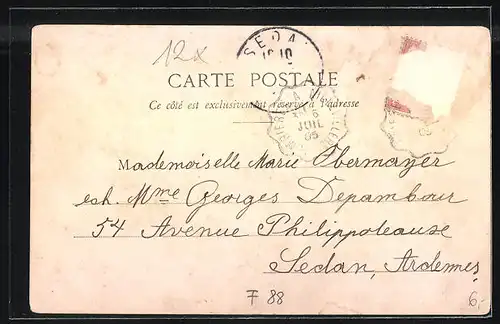 12x
SEDA
CARTE POSTALE
Ce côté est exclusivement réservé à l'adresse
6
JUIL
05
Mademoiselle Marie Obermayer
ch. Mme Georges Depambour
54 Avenue Philippoteause
Sedan, Ardennes
F 88
6,-